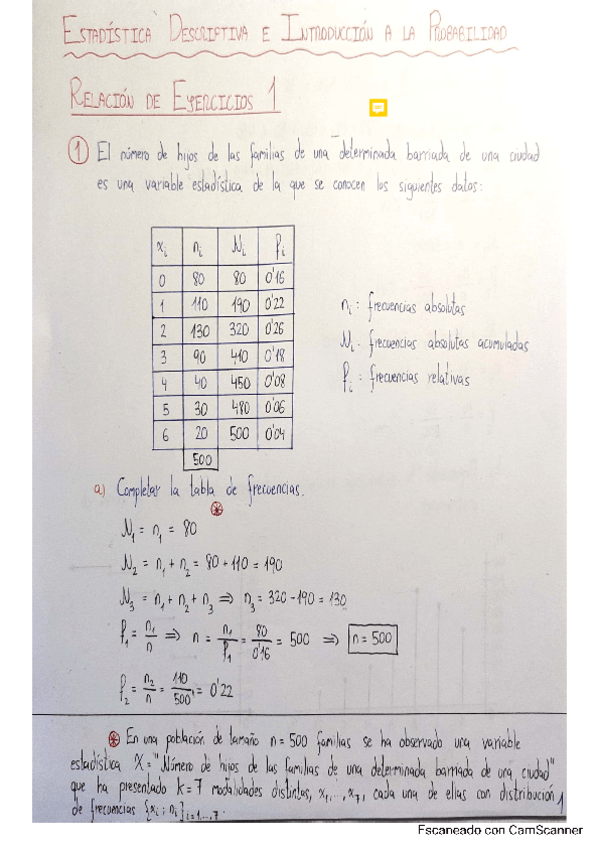 ESTADÍSTICA DESCRIPTIVA E INTRODUCCIÓN A LA PROBABILIDAD
RELACIÓN DE EJERCICIOS 1
① El número de hijos de las familias de una determinada barriada de una ciudad
es una variable estadística de la que se conocen los siguientes datos:
xi ni Ni fi
0 80 80 0'16
1 110 190 0'22
2 130 320 0'26
3 90 410 0'18
4 40 450 0'08
5 30 480 0'06
6 20 500 0'04
500
ni: frecuencias absolutas
Ni: frecuencias absolutas acumuladas
fi: frecuencias relativas
a) Completar la tabla de frecuencias.
⊛
N₁ = n₁ = 80
N₂ = n₁ + n₂ = 80 + 110 = 190
N₃ = n₁ + n₂ + n₃ ⇒ n₃ = 320 - 190 = 130
f₁ = n₁/n ⇒ n = n₁/f₁ = 80/0'16 = 500 ⇒ n = 500
f₂ = n₂/n = 110/500 = 0'22
⊛ En una población de tamaño n = 500 familias se ha observado una variable
estadística X = "Número de hijos de las familias de una determinada barriada de una ciudad"
que ha presentado k = 7 modalidades distintas, x₁, ..., x₇, cada una de ellas con distribución
de frecuencias {xi ; ni} i=1,...,7.
1
Escaneado con CamScanner